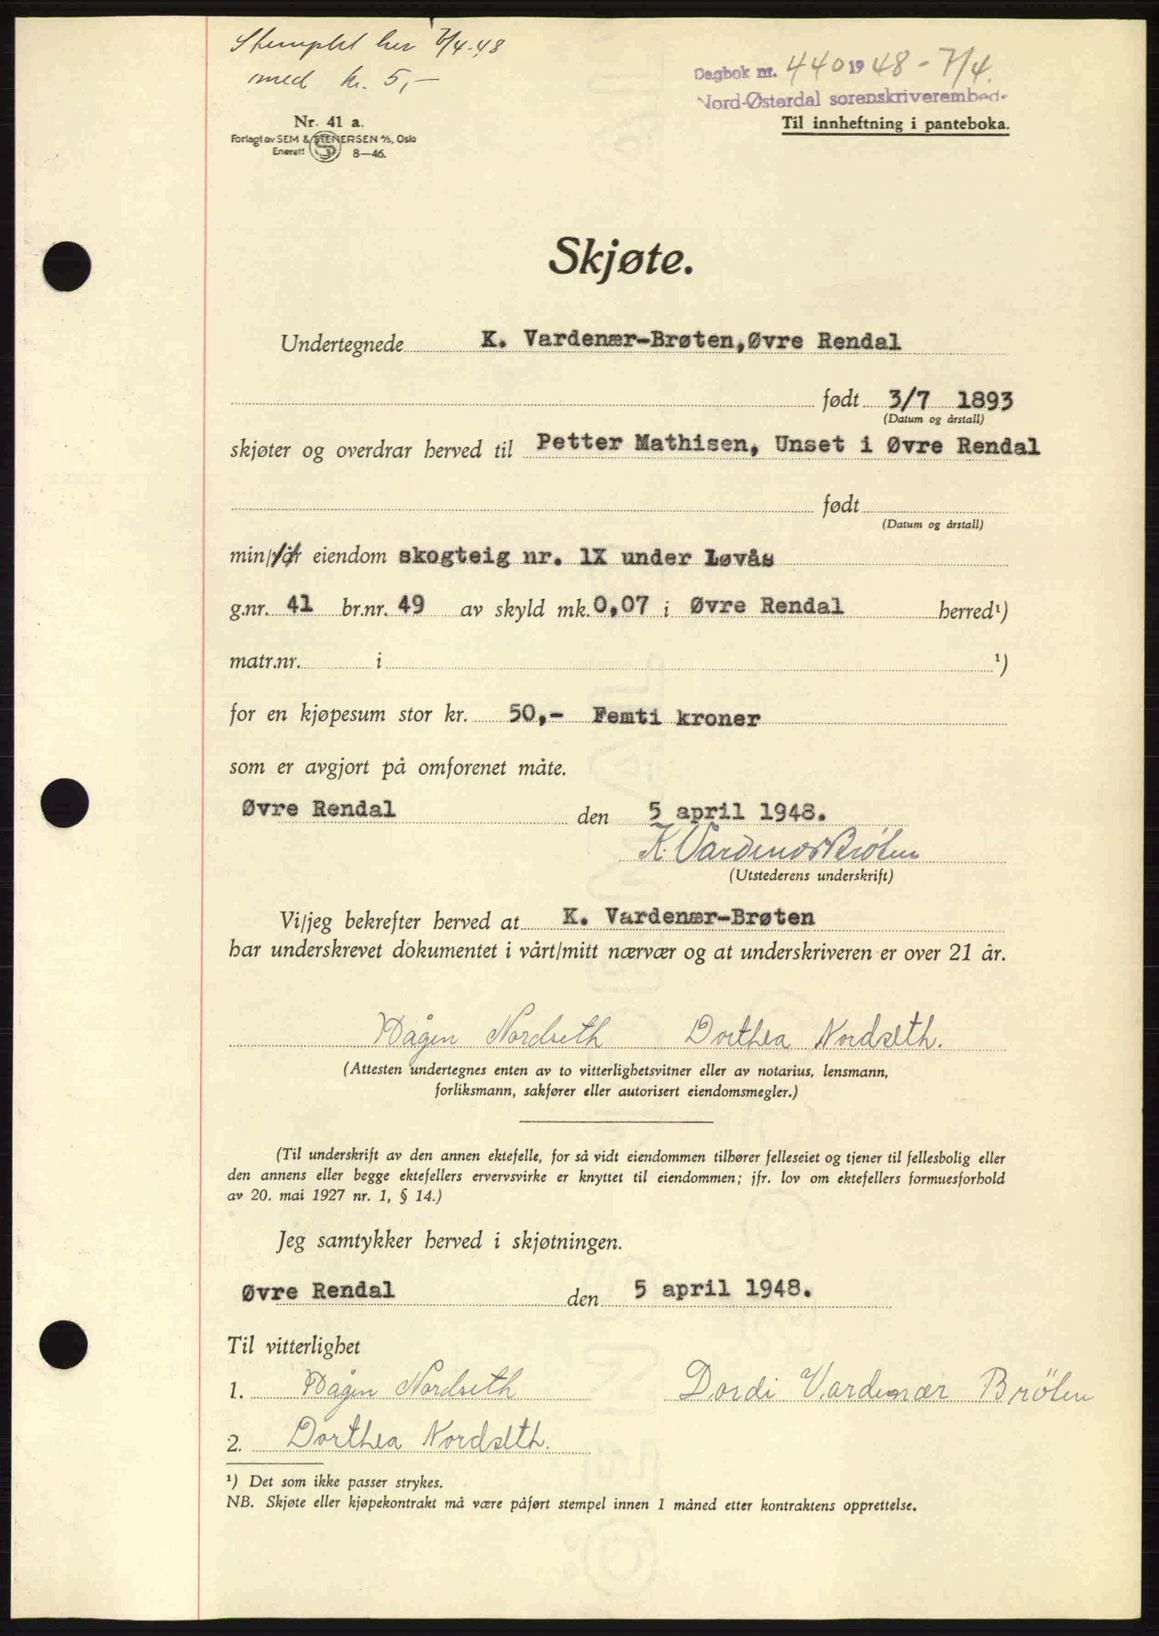 Stemplet her 7/4-48
med kr. 5,-
Dagbok nr. 440 1948 - 7/4.
Nord-Østerdal sorenskriverembed-
Nr. 41 a.
Til innheftning i panteboka.
Forlagt av SEM & STENERSEN A/S, Oslo
Enerett 8—46.
Skjøte.
Undertegnede K. Vardenær-Brøten, Øvre Rendal
født 3/7 1893
(Datum og årstall)
skjøter og overdrar herved til Petter Mathisen, Unset i Øvre Rendal
født
(Datum og årstall)
min/vår eiendom skogteig nr. 1X under Løvås
g.nr. 41 br.nr. 49 av skyld mk. 0,07 i Øvre Rendal herred¹)
matr.nr. i ¹)
for en kjøpesum stor kr. 50,- Femti kroner
som er avgjort på omforenet måte.
Øvre Rendal den 5 april 1948.
K. Vardenær Brøten
(Utstederens underskrift)
Vi/jeg bekrefter herved at K. Vardenær-Brøten
har underskrevet dokumentet i vårt/mitt nærvær og at underskriveren er over 21 år.
Hågen Nordseth Dorthea Nordseth.
(Attesten undertegnes enten av to vitterlighetsvitner eller av notarius, lensmann,
forliksmann, sakfører eller autorisert eiendomsmegler.)
(Til underskrift av den annen ektefelle, for så vidt eiendommen tilhører felleseiet og tjener til fellesbolig eller
den annens eller begge ektefellers ervervsvirke er knyttet til eiendommen; jfr. lov om ektefellers formuesforhold
av 20. mai 1927 nr. 1, § 14.)
Jeg samtykker herved i skjøtningen.
Øvre Rendal den 5 april 1948.
Til vitterlighet
1. Hågen Nordseth Dordi Vardenær Brøten
2. Dorthea Nordseth.
¹) Det som ikke passer strykes.
NB. Skjøte eller kjøpekontrakt må være påført stempel innen 1 måned etter kontraktens opprettelse.